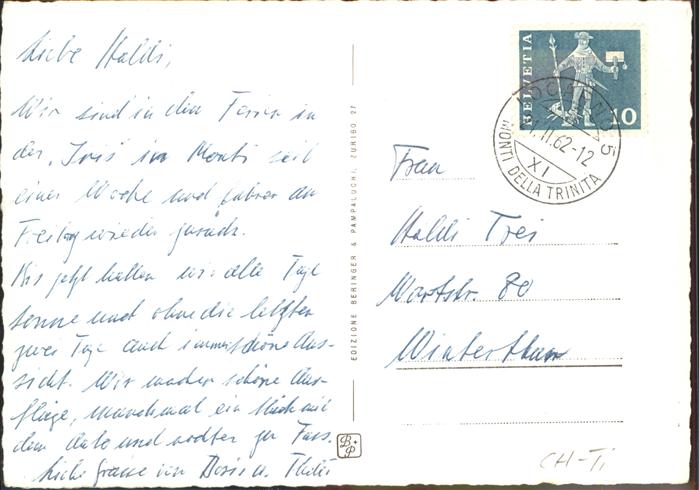 Liebe Haldi,
Wir sind in den Ferien in
der "Iris" in Monti seit
einer Woche und fahren am
Freitag wieder zurück.
Bis jetzt hatten wir alle Tage
Sonne und ohne die letzten
zwei Tage auch immer schöne Aus-
sicht. Wir machen schöne Aus-
flüge, manchmal ein Stück mit
dem Auto und nachher zu Fuss.
Liebe Grüsse von Doris u.
EDIZIONE BERINGER & PAMPALUCHI, ZURIGO 27
B+P
HELVETIA
10
LOCARNO 5
.II.62-12
XI
MONTI DELLA TRINITA
Frau
Haldi Frei
Wartstr. 80
Winterthur
CH-Ti